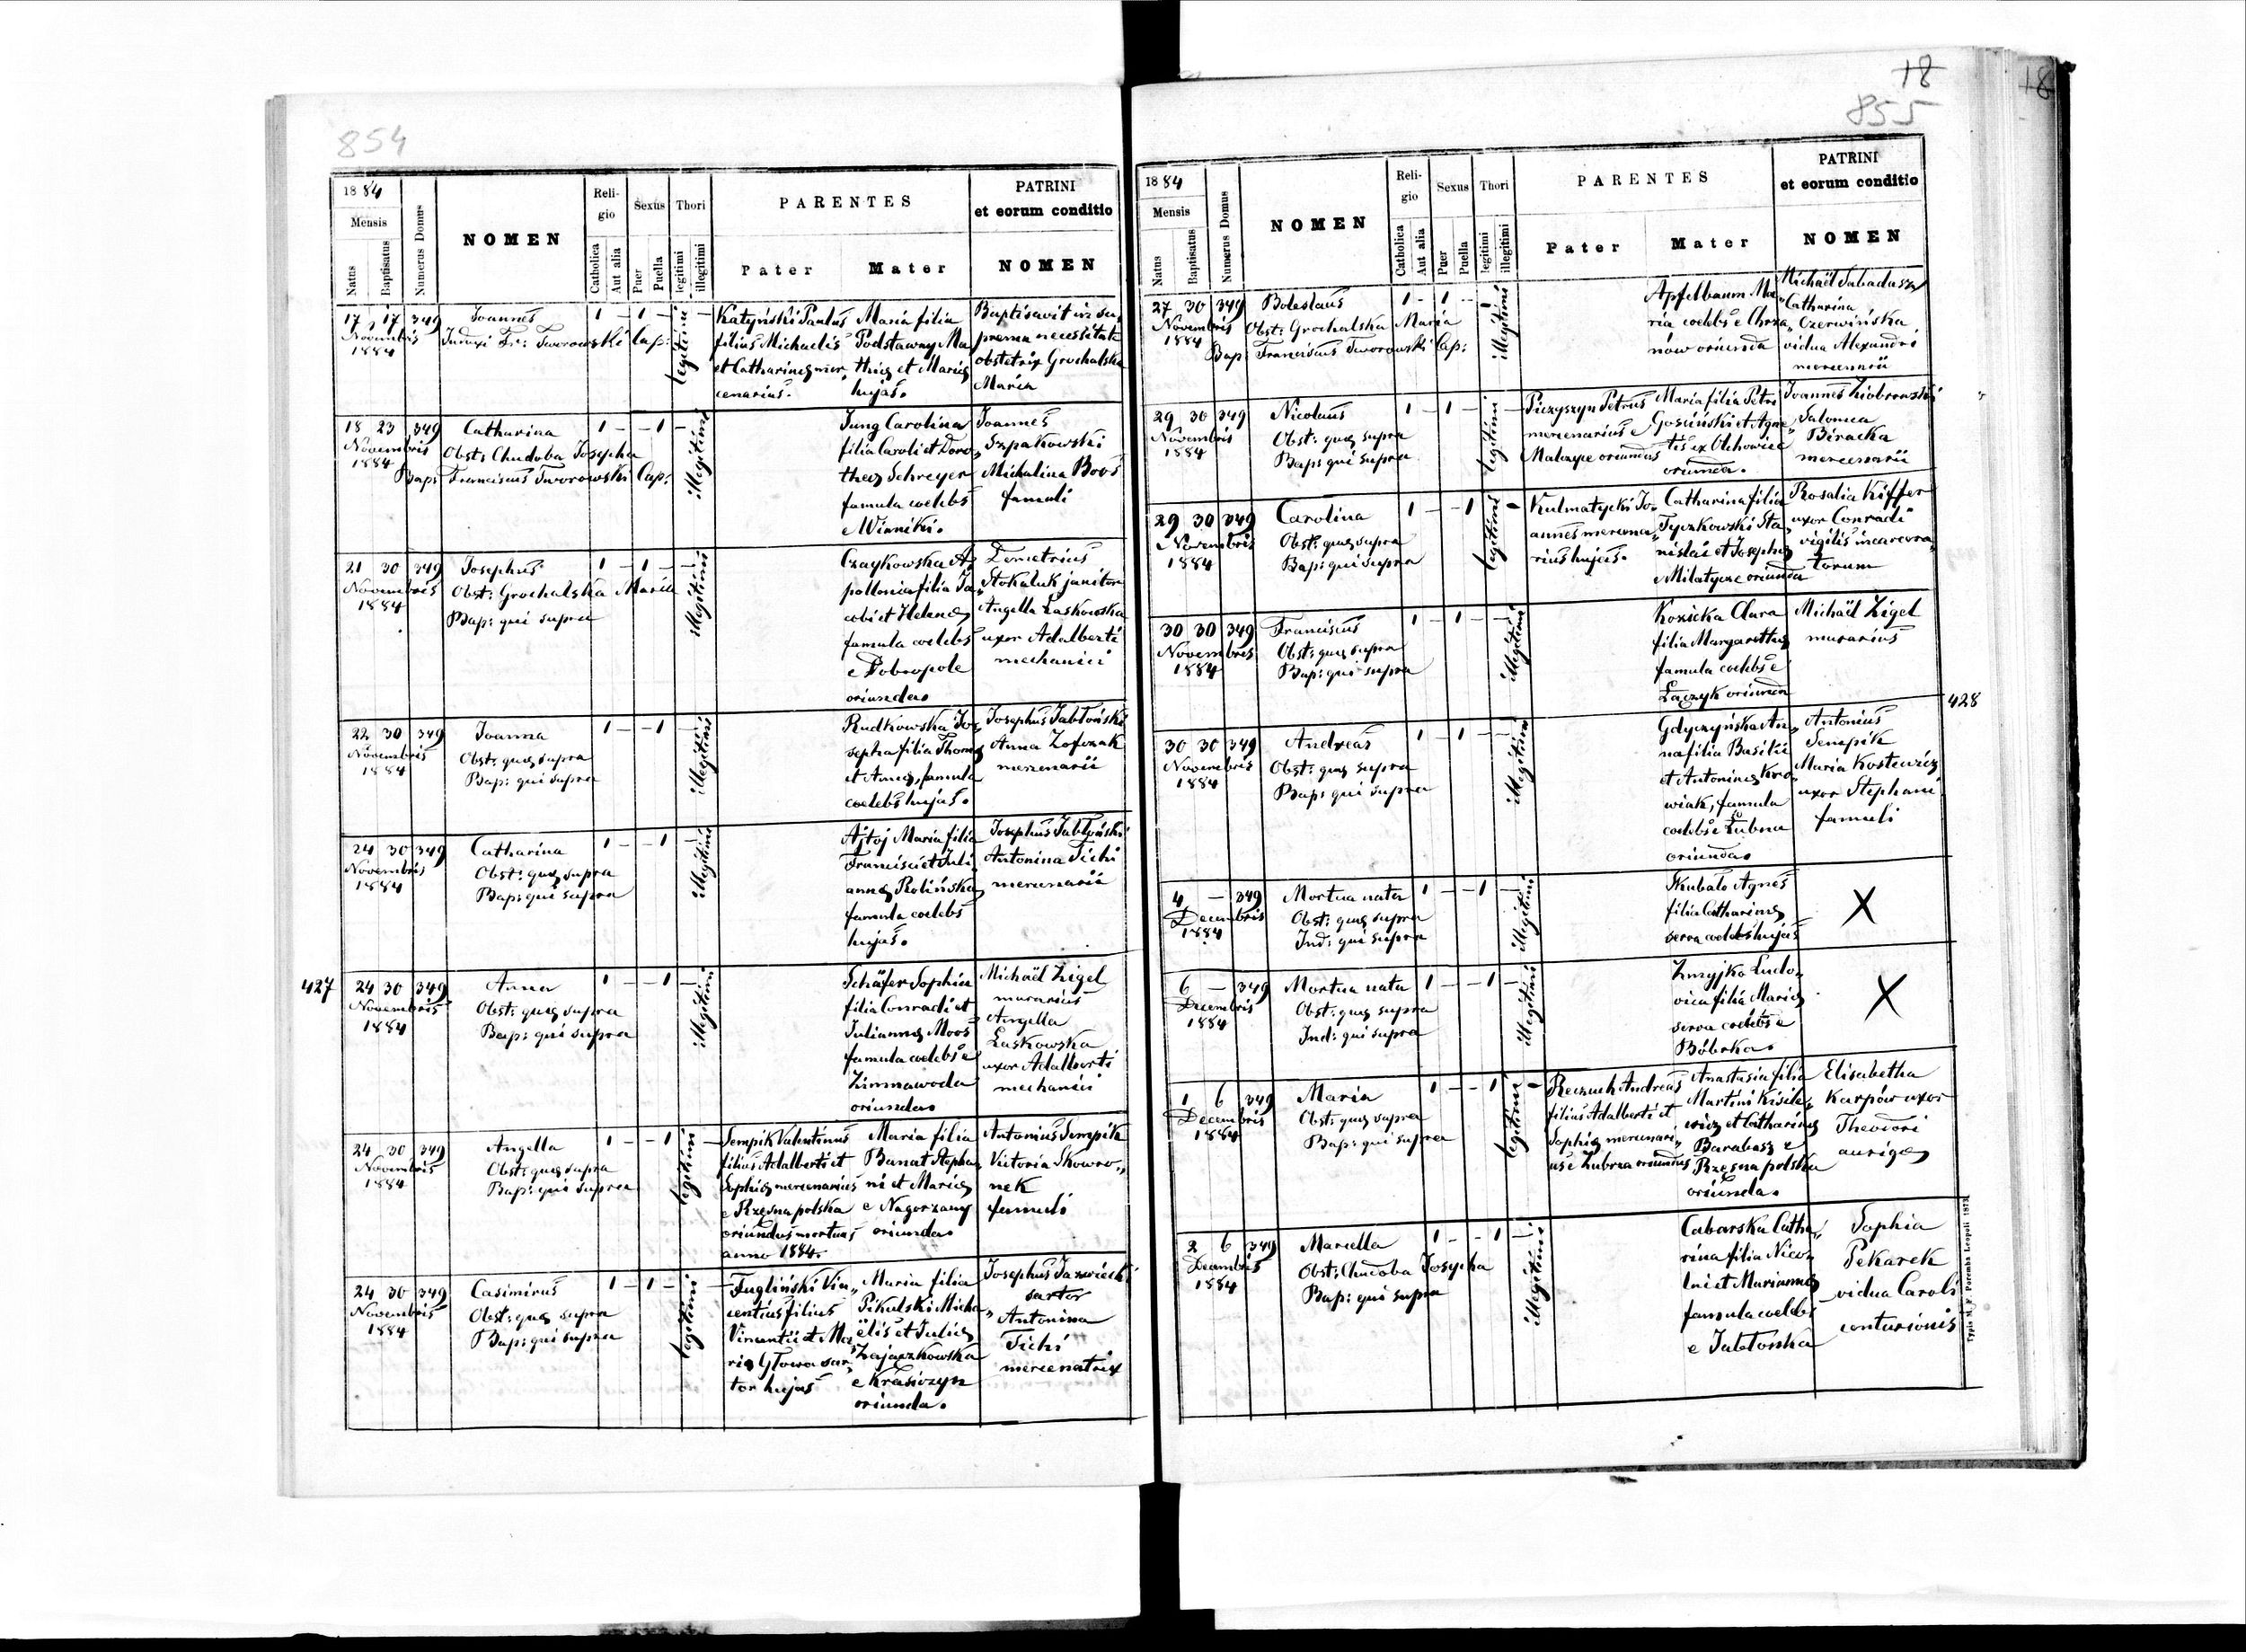 854
1884
Mensis
Natus
Baptisatus
Numerus Domus
NOMEN
Reli-
gio
Catholica
Aut alia
Sexus
Puer
Puella
Thori
legitimi
illegitimi
PARENTES
Pater
Mater
PATRINI
et eorum conditio
NOMEN
17 17 349
Novembris
1884
Joannes
Induxi Fr: Tworowski Cap:
1 - 1 -
legitimi
Katyński Paulus
filius Michaelis
et Catharinæ mer„
cenarius.
Maria filia
Podstawny Ma
thiæ et Mariæ
hujas.
Baptisavit in su„
prema necessitate
obstetrix Grochalska
Maria
18 23 349
Novembris
1884
Catharina
Obst: Chudoba Josepha
Bap: Franciscus Tworowski Cap:
1 - - 1
illegitimi
Jung Carolina
filia Caroli et Doro
theæ Schreyer
famula coelebs
e Winniki.
Joannes
Szpakowski
Michalina Boos
famuli
21 30 349
Novembris
1884
Josephus
Obst: Grochalska Maria
Bap: qui supra
1 - 1 -
illegitimi
Czaykowska A„
pollonia filia Ja„
cobi et Helenæ
famula coelebs
e Dobropole
oriunda.
Demetrius
Stokaluk janitor
Angella Laskowska
uxor Adalberti
mechanici
22 30 349
Novembris
1884
Joanna
Obst: quæ supra
Bap: qui supra
1 - - 1
illegitimi
Rudkowska Jo„
sepha filia Thomæ
et Annæ, famula
coelebs hujas.
Josephus Jabłoński
Anna Zofczak
mercenarii
24 30 349
Novembris
1884
Catharina
Obst: quæ supra
Bap: qui supra
1 - - 1
illegitimi
Ajtoj Maria filia
Francisci et Juli
annæ Rolińska
famula coelebs
hujas.
Josephus Jabłoński
Antonina Tichi
mercenarii
427
24 30 349
Novembris
1884
Anna
Obst: quæ supra
Bap: qui supra
1 - - 1
illegitimi
Schäfer Sophia
filia Conradi et
Juliannæ Moos
famula coelebs e
Zimnawoda
oriunda.
Michaël Zigel
murarius
Angella
Laskowska
uxor Adalberti
mechanici
24 30 349
Novembris
1884
Angella
Obst: quæ supra
Bap: qui supra
1 - - 1
legitimi
Sempik Valentinus
filius Adalberti et
Sophiæ mercenarius
e Rzęsna polska
oriundus mortuus
anno 1884.
Maria filia
Banat Stepha
ni et Mariæ
e Nagorzany
oriunda.
Antonius Sempik
Victoria Skowro„
nek
famuli
24 30 349
Novembris
1884
Casimirus
Obst: quæ supra
Bap: qui supra
1 - 1 -
legitimi
Fugliński Vin„
centius filius
Vincentii et Ma
riæ Głowa sar„
tor hujas
Maria filia
Pikulski Micha„
ëlis et Juliæ
Zajączkowska
e Krasiczyn
oriunda.
Josephus Jazwiecki
sartor
Antonina
Tichi
mercenatrix
18
855
18
1884
Mensis
Natus
Baptisatus
Numerus Domus
NOMEN
Reli-
gio
Catholica
Aut alia
Sexus
Puer
Puella
Thori
legitimi
illegitimi
PARENTES
Pater
Mater
PATRINI
et eorum conditio
NOMEN
27 30 349
Novembris
1884
Boleslaus
Obst: Grochalska Maria
Bap: Franciscus Tworowski Cap:
1 - 1 -
illegitimi
Apfelbaum Ma„
ria coelebs e Chrza„
nów oriunda
Michaël Sabadusz
Catharina
Czerwińska
vidua Alexandri
mercenarii
29 30 349
Novembris
1884
Nicolaus
Obst: quæ supra
Bap: qui supra
1 - 1 -
legitimi
Piczyszyn Petrus
mercenarius e
Malczyce oriundus
Maria filia Petri
Gosiński et Agne„
tis ex Olchowiec
oriunda.
Joannes Ziobrowski
Salomea
Biracka
mercenarii
29 30 349
Novembris
1884
Carolina
Obst: quæ supra
Bap: qui supra
1 - - 1
legitimi
Kulmatycki Jo„
annes mercena„
rius hujas.
Catharina filia
Tyczkowski Sta„
nislai et Josephæ
e Milatycze oriunda
Rosalia Kiffer
uxor Conradi
vigilis incarcera„
torum
30 30 349
Novembris
1884
Franciscus
Obst: quæ supra
Bap: qui supra
1 - 1 -
illegitimi
Kozicka Clara
filia Margarethæ
famula coelebs e
Łączyk oriunda
Michaël Zigel
murarius
428
30 30 349
Novembris
1884
Andreas
Obst: quæ supra
Bap: qui supra
1 - 1 -
illegitimi
Gdyczyńska An„
na filia Basilii
et Antoninæ Kro„
wiak, famula
coelebs e Łubna
oriunda.
Antonius
Sempik
Maria Kostewicz
uxor Stephani
famuli
4 - 349
Decembris
1884
Mortua nata
Obst: quæ supra
Ind: qui supra
1 - - 1
illegitimi
Skubało Agnes
filia Catharinæ
serva coelebs hujas
X
6 - 349
Decembris
1884
Mortua nata
Obst: quæ supra
Ind: qui supra
1 - - 1
illegitimi
Zmyjko Ludo„
vica filia Mariæ
serva coelebs e
Bóbrka.
X
1 6 349
Decembris
1884
Maria
Obst: quæ supra
Bap: qui supra
1 - - 1
legitimi
Reczuch Andreas
filius Adalberti et
Sophiæ mercenari„
us e Zubrza oriundus
Anastasia filia
Martini Kisiele„
wicz et Catharinæ
Barabasz e
Rzęsna polska
oriunda.
Elisabetha
Karpów uxor
Theodori
aurigæ
2 6 349
Decembris
1884
Mariella
Obst: Chudoba Josepha
Bap: qui supra
1 - - 1
illegitimi
Cabarska Catha„
rina filia Nico„
lai et Mariannæ
famula coelebs
e Jabłonka
Sophia
Pekarek
vidua Caroli
centurionis
Typis M. F. Poremba Leopoli 1873.